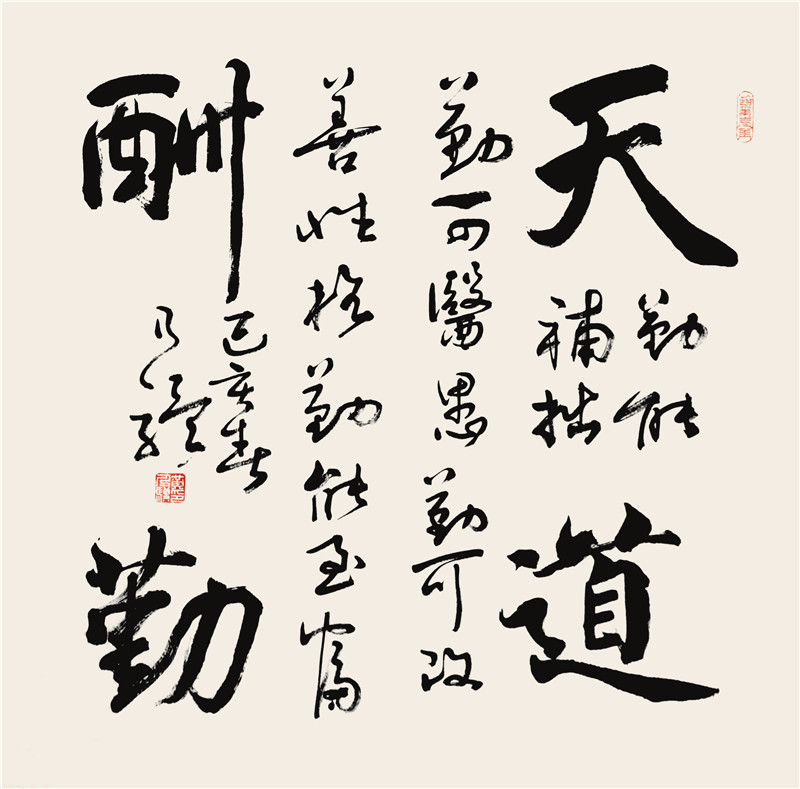 天
勤能
補拙
道
勤可醫愚勤可改
善性格勤能至富
酬
己亥春
乃
勤